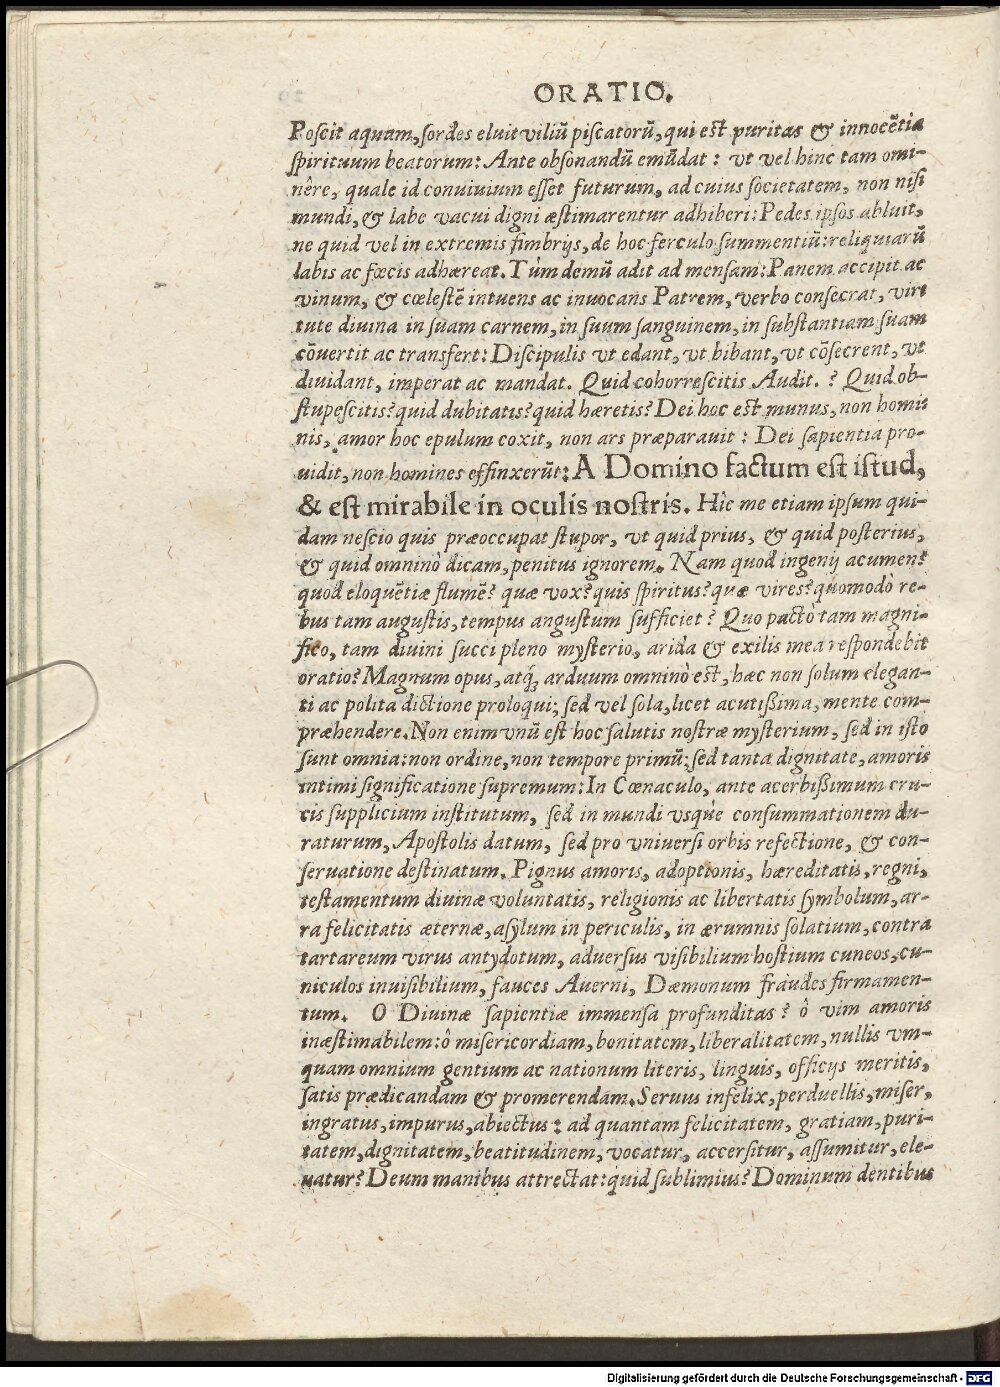 ORATIO.
Poſcit aquam, ſordes eluit viliū piſcatorū, qui eſt puritas & innocētia
ſpirituum beatorum: Ante obſonandū emūdat : vt vel hinc tam omi-
nêre, quale id conuiuium eſſet futurum, ad cuius ſocietatem, non niſi
mundi, & labe vacui digni æſtimarentur adhiberi: Pedes ipſos abluit,
ne quid vel in extremis fimbrijs, de hoc ferculo ſummentiū: reliquiarū
labis ac fœcis adhæreat. Tùm demū adit ad menſam: Panem accipit ac
vinum, & cœleſtē intuens ac inuocans Patrem, verbo conſecrat, vir-
tute diuina in ſuam carnem, in ſuum ſanguinem, in ſubſtantiam ſuam
cōuertit ac transfert: Diſcipulis vt edant, vt bibant, vt cōſecrent, vt
diuidant, imperat ac mandat. Quid cohorreſcitis Audit. ? Quid ob-
ſtupeſcitis? quid dubitatis? quid hæretis? Dei hoc eſt munus, non homi-
nis, amor hoc epulum coxit, non ars præparauit : Dei ſapientia pro-
uidit, non homines effinxerūt: A Domino factum eſt iſtud,
& eſt mirabile in oculis noſtris. Hîc me etiam ipſum qui-
dam neſcio quis præoccupat ſtupor, vt quid prius, & quid poſterius,
& quid omninò dicam, penitus ignorem. Nam quod ingenij acumen?
quod eloquētiæ flumē? quæ vox? quis ſpiritus? quæ vires? quomodò re-
bus tam auguſtis, tempus anguſtum ſufficiet? Quo pactò tam magni-
fico, tam diuini ſucci pleno myſterio, arida & exilis mea reſpondebit
oratio? Magnum opus, atq́; arduum omninò eſt, hæc non ſolum elegan-
ti ac polita dictione proloqui; ſed vel ſola, licet acutißima, mente com-
præhendere. Non enim vnū eſt hoc ſalutis noſtræ myſterium, ſed in iſto
ſunt omnia: non ordine, non tempore primū; ſed tanta dignitate, amoris
intimi ſignificatione ſupremum: In Cœnaculo, ante acerbißimum cru-
cis ſupplicium inſtitutum, ſed in mundi vsq́ue conſummationem du-
raturum, Apoſtolis datum, ſed pro vniuerſi orbis refectione, & con-
ſeruatione deſtinatum. Pignus amoris, adoptionis, hæreditatis, regni,
teſtamentum diuinæ voluntatis, religionis ac libertatis ſymbolum, ar-
ra felicitatis æternæ, aſylum in periculis, in ærumnis ſolatium, contra
tartareum virus antydotum, aduerſus viſibilium hoſtium cuneos, cu-
niculos inuiſibilium, fauces Auerni, Dæmonum fraudes firmamen-
tum. O Diuinæ ſapientiæ immenſa profunditas? ô vim amoris
inæſtimabilem: ô miſericordiam, bonitatem, liberalitatem, nullis vm-
quam omnium gentium ac nationum literis, linguis, officijs meritis,
ſatis prædicandam & promerendam. Seruus infelix, perduellis, miſer,
ingratus, impurus, abiectus : ad quantam felicitatem, gratiam, puri-
tatem, dignitatem, beatitudinem, vocatur, accerſitur, aſſumitur, ele-
uatur? Deum manibus attrectat: quid ſublimius? Dominum dentibus
Digitalisierung gefördert durch die Deutsche Forschungsgemeinschaft - DFG